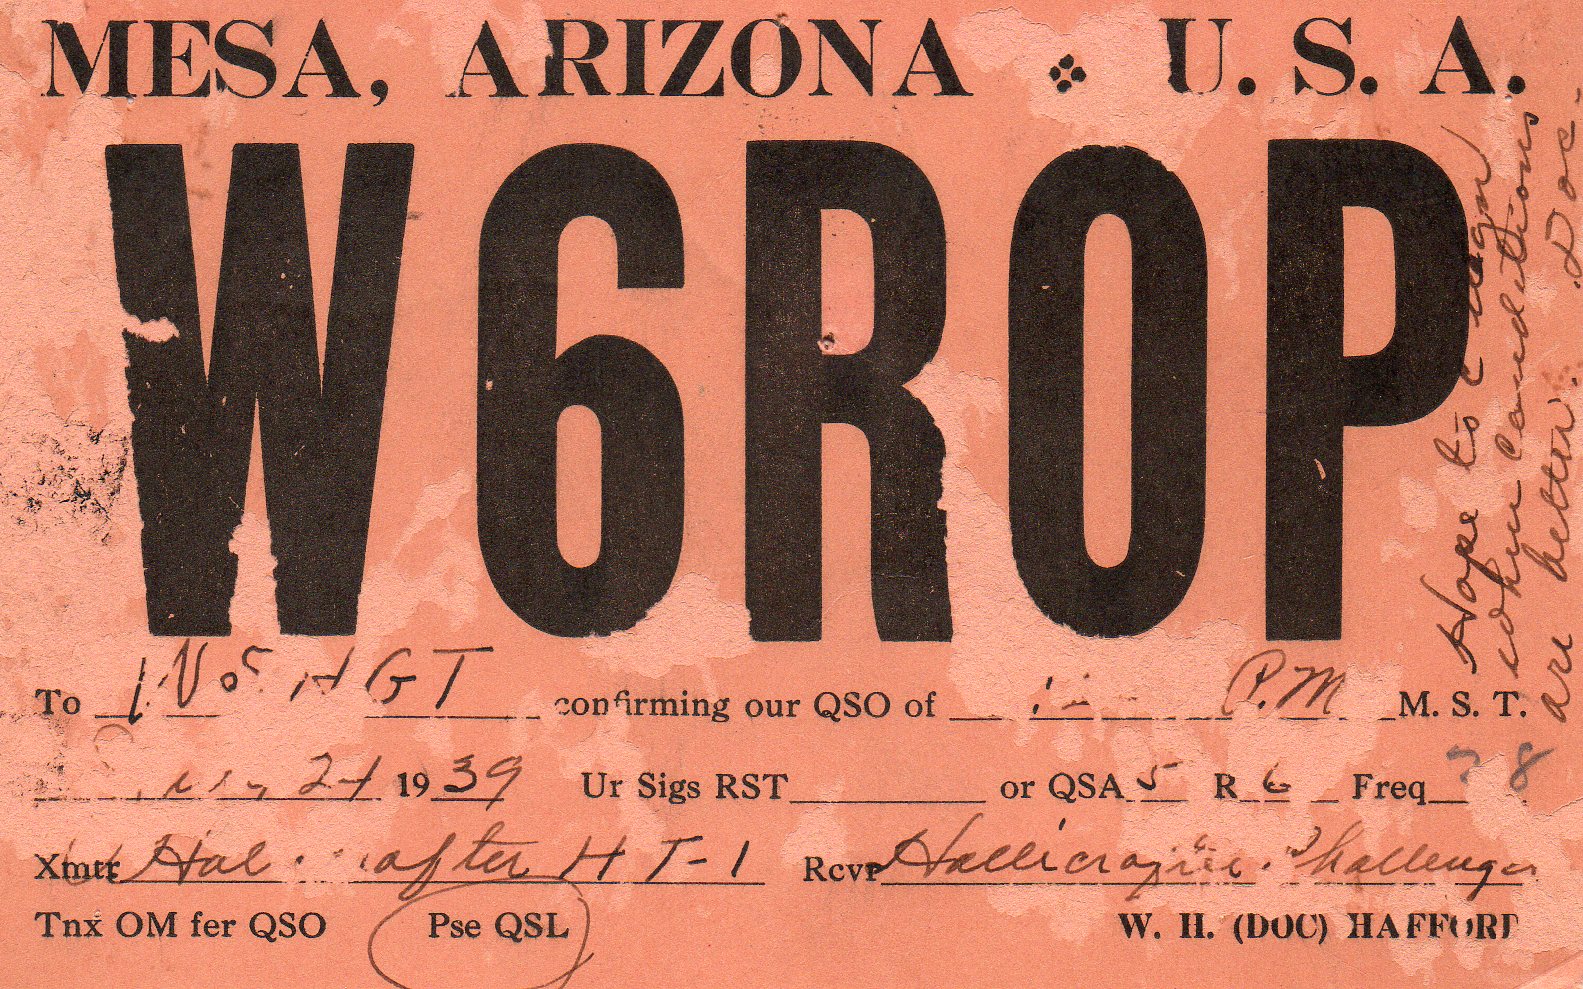 MESA, ARIZONA U. S. A.
W6ROP
To HGT confirming our QSO of P.M M. S. T.
24 1939 Ur Sigs RST or QSA 5 R 6 Freq 8
Xmtr Hal after HT-1 Rcvr Hallicrafter Challenger
Tnx OM fer QSO Pse QSL W. H. (DOC) HAFFORD
Hope to c u agn
when conditions
are better. Doc-